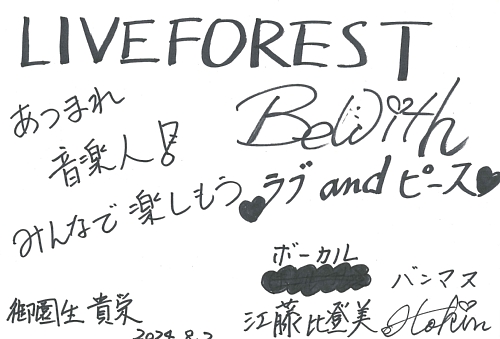 LIVEFOREST
あつまれ
音楽人!
みんなで楽しもう
BeWith
ラブ and ピース
ボーカル
江藤比登美
バンマス
御園生貴栄